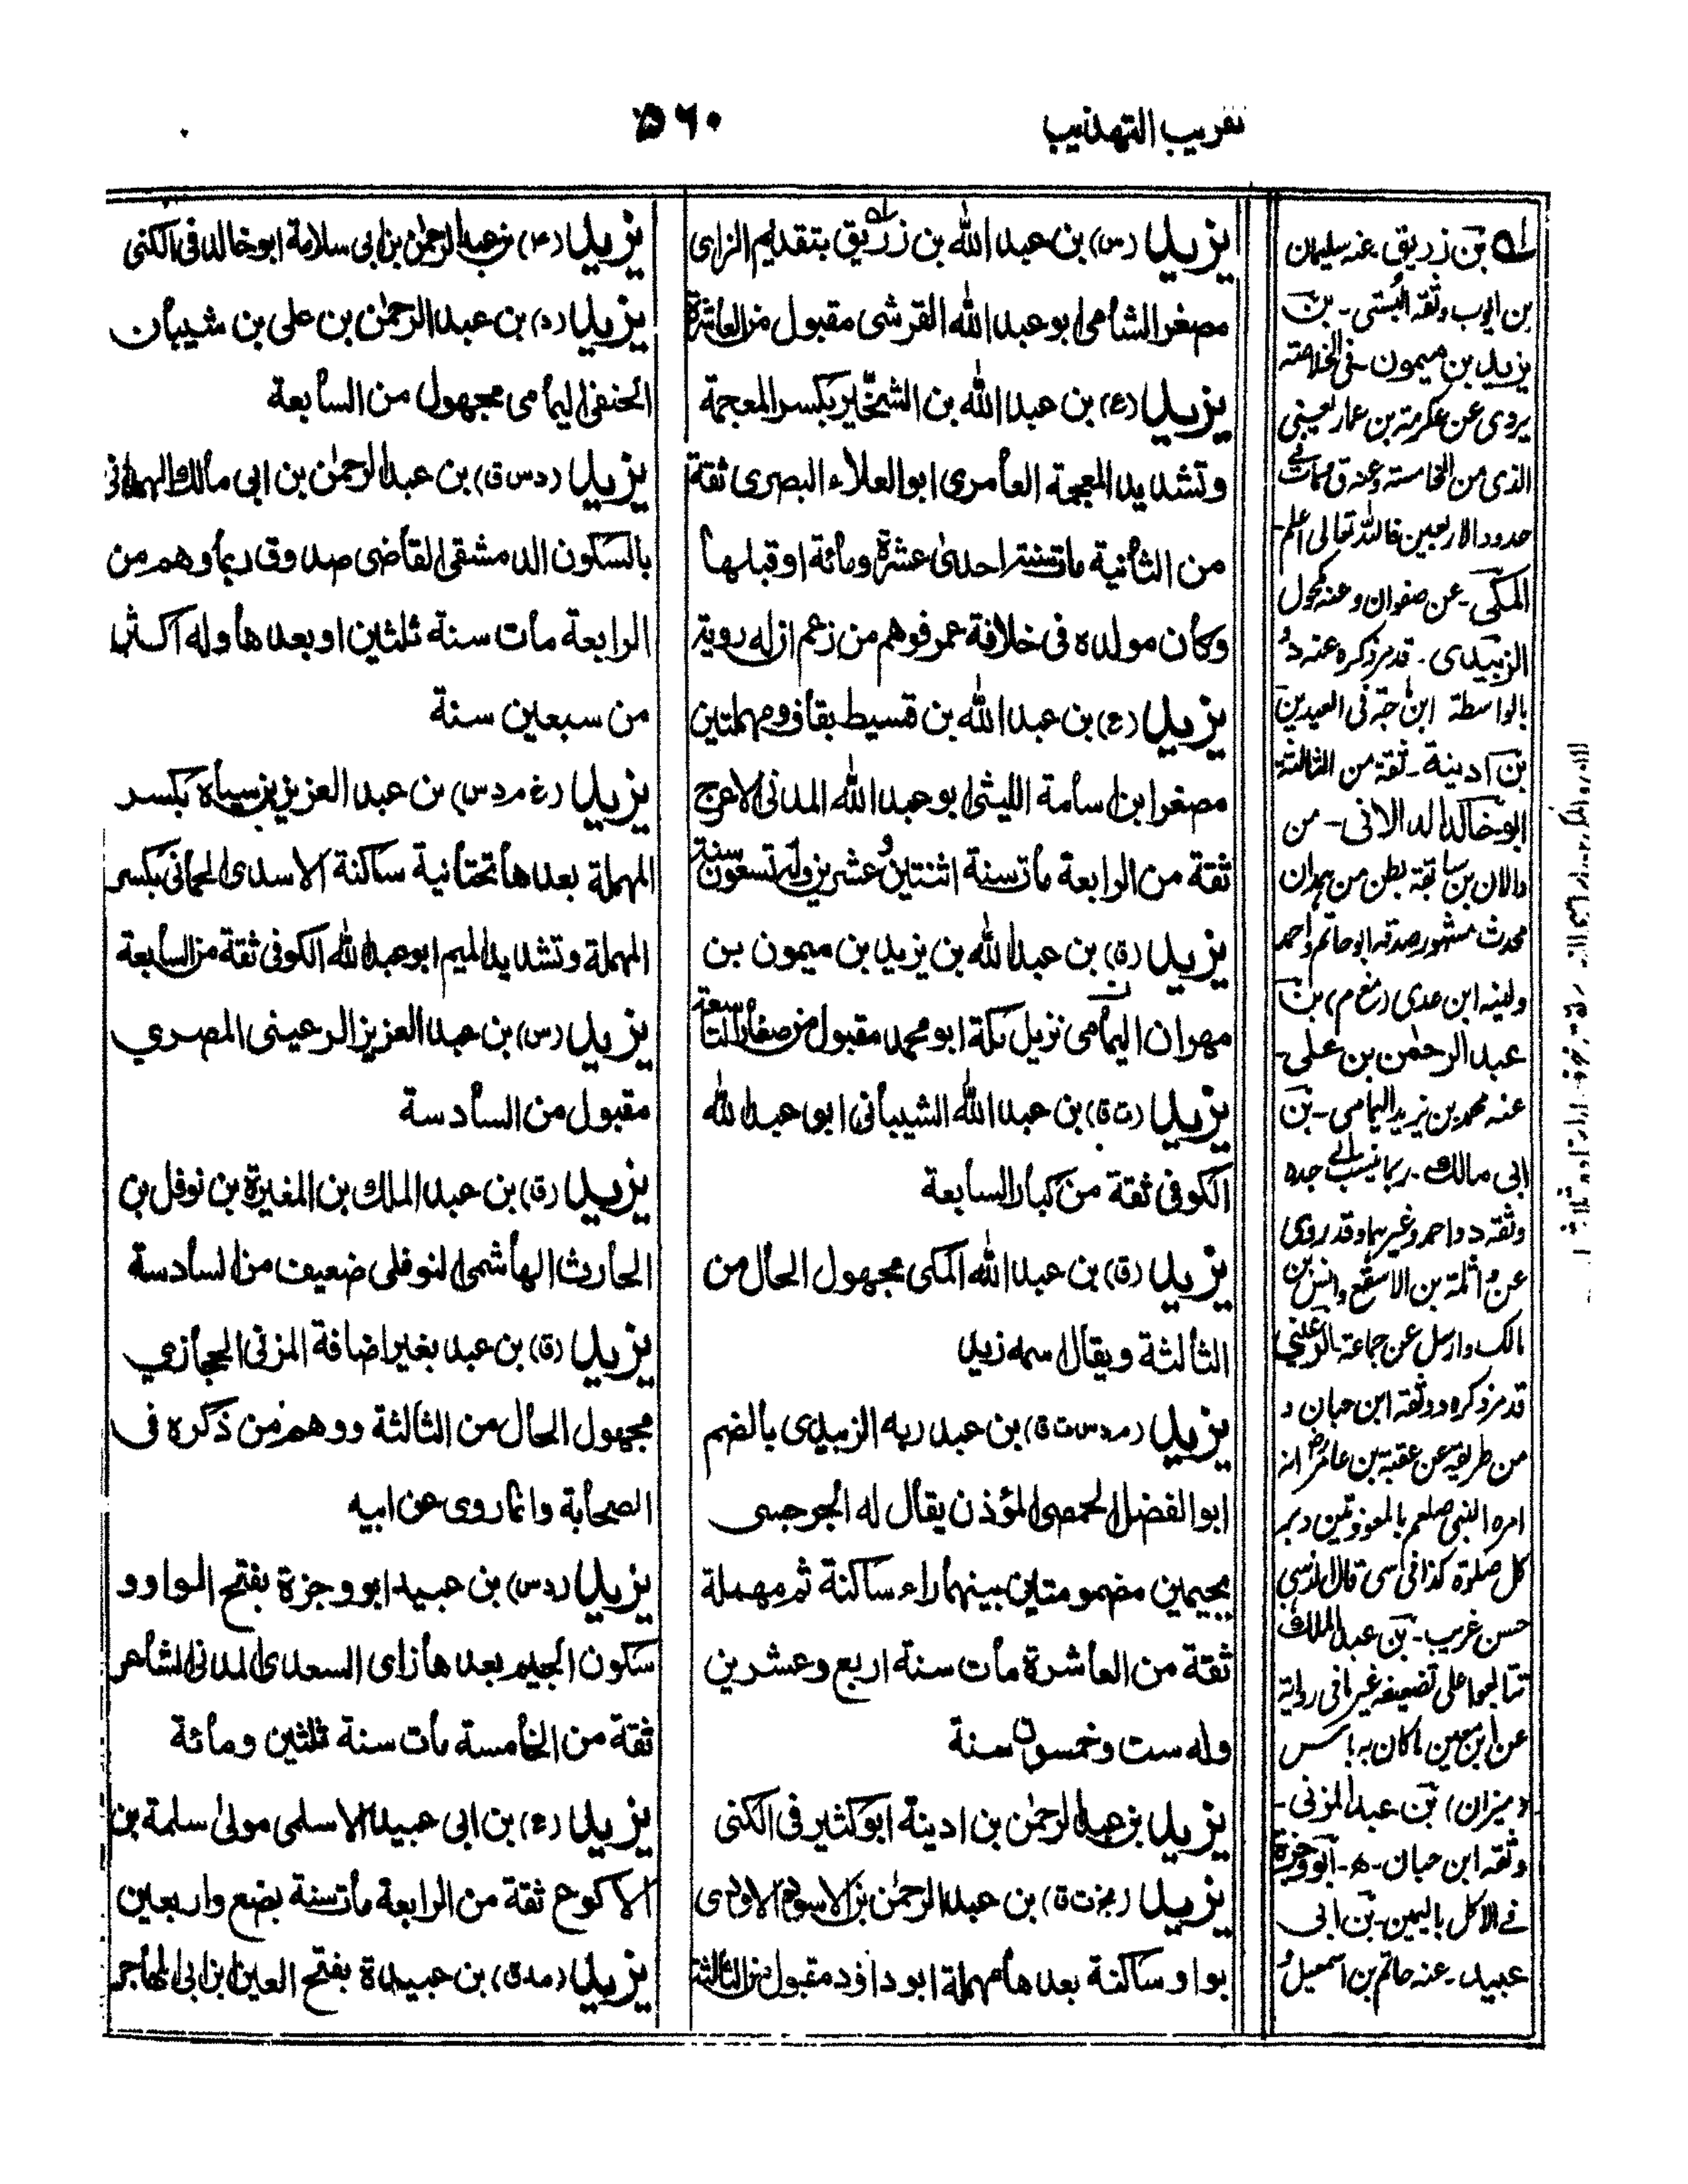 تقريب التهذيب
۵۶۰
يزيد (س) بن عبد الله بن زريق بتقديم الزاى
مصغر الشامى ابو عبد الله القرشى مقبول من العاشرة
يزيد (ع) بن عبد الله بن الشخّير بكسر المعجمة
وتشديد المعجمة العامرى ابو العلاء البصرى ثقة
من الثانية مات سنة احدى عشرة ومائة او قبلها
وكان مولده فى خلافة عمر فوهم من زعم ان له روية
يزيد (ع) بن عبد الله بن قسيط بقاف ومهملتين
مصغر ابن اسامة الليثى ابو عبد الله المدنى الاعرج
ثقة من الرابعة مات سنة اثنتين وعشرين وله تسعون سنة
يزيد (ق) بن عبد الله بن يزيد بن ميمون بن
مهران اليمامى نزيل مكة ابو محمد مقبول من صغار التاسعة
يزيد (ت ق) بن عبد الله الشيبانى ابو عبد الله
الكوفى ثقة من كبار السابعة
يزيد (ق) بن عبد الله المكى مجهول الحال من
الثالثة ويقال اسمه زيد
يزيد (م د س ق) بن عبد ربه الزبيدى بالضم
ابو الفضل الحمصى المؤذن يقال له الجرجسى
بجيمين مضمومتين بينهما راء ساكنة ثم مهملة
ثقة من العاشرة مات سنة اربع وعشرين
وله ست وخمسون سنة
يزيد بن عبد الرحمن بن ادينة ابو كثير فى الكنى
يزيد (بخ ت ق) بن عبد الرحمن بن الاسود الاودى
بواو ساكنة بعدها مهملة ابو داؤد مقبول من الثالثة
يزيد (۴) بن عبد الرحمن بن ابى سلامة ابو خالد فى الكنى
يزيد (د) بن عبد الرحمن بن على بن شيبان
الحنفى اليمامى مجهول من السابعة
يزيد (د س ق) بن عبد الرحمن بن ابى مالك الهمدانى
بالسكون الدمشقى القاضى صدوق ربما وهم من
الرابعة مات سنة ثلثين او بعدها وله اكثر
من سبعين سنة
يزيد (خ م د س) بن عبد العزيز بن سياه بكسر
المهملة بعدها تحتانية ساكنة الاسدى الحمانى بكسر
المهملة وتشديد الميم ابو عبد الله الكوفى ثقة من السابعة
يزيد (س) بن عبد العزيز الرعينى المصري
مقبول من السادسة
يزيد (ق) بن عبد الملك بن المغيرة بن نوفل بن
الحارث الهاشمى النوفلى ضعيف من السادسة
يزيد (ق) بن عبد بغير اضافة المزنى الحجازي
مجهول الحال من الثالثة ووهم من ذكره فى
الصحابة وانما روى عن ابيه
يزيد (د س) بن عبيد ابو وجزة بفتح الواو و
سكون الجيم بعدها زاى السعدى المدنى الشاعر
ثقة من الخامسة مات سنة ثلثين ومائة
يزيد (ع) بن ابى عبيد الاسلمى مولى سلمة بن
الاكوع ثقة من الرابعة مات سنة بضع واربعين
يزيد (مدق) بن عبيدة بفتح العين ابن ابى المهاجر
بن زريق ـ عنه سليمان
بن ايوب وثقه البستى ـ بن
يزيد بن ميمون ـ فى الخلاصة
يروى عن عكرمة بن عمار يعنى
الذى من الخامسة وعنه ق مات فى
حدود الاربعين فالله تعالى اعلم ـ
المكى ـ عن صفوان وعنه مكحول
الزبيدى ـ قد مر ذكره عنه د
بالواسطة ابن ماجة فى العيدين
بن ادينة ـ ثقة من الثالثة
ابو خالد الدالانى ـ من
دالان بن سابقة بطن من همدان
محدث مشهور صدقه ابو حاتم واحمد
ولينه ابن عدى (مغ م) بن
عبد الرحمن بن على ـ
عنه محمد بن يزيد اليمامى ـ بن
ابى مالك ـ ربما نسب الى جده
وثقه د واحمد وغيرهما وقد روى
عن واثلة بن الاسقع وانس بن
مالك وارسل عن جماعة الرعينى
قد مر ذكره ووثقه ابن حبان و
من طريقه عن عقبة بن عامر انه
امره النبى صلعم بالمعوذتين دبر
كل صلوة كذا فى س قال الترمذى
حسن غريب ـ بن عبد الملك
تتابعوا على تضعيفه غير ما فى رواية
عن ابن معين ما كان به باس
(ميزان) بن عبد المزنى ـ
وثقه ابن حبان ـ ابو وجزة
فى الاكل باليمين ـ بن ابى
عبيد ـ عنه حاتم بن اسمعيل